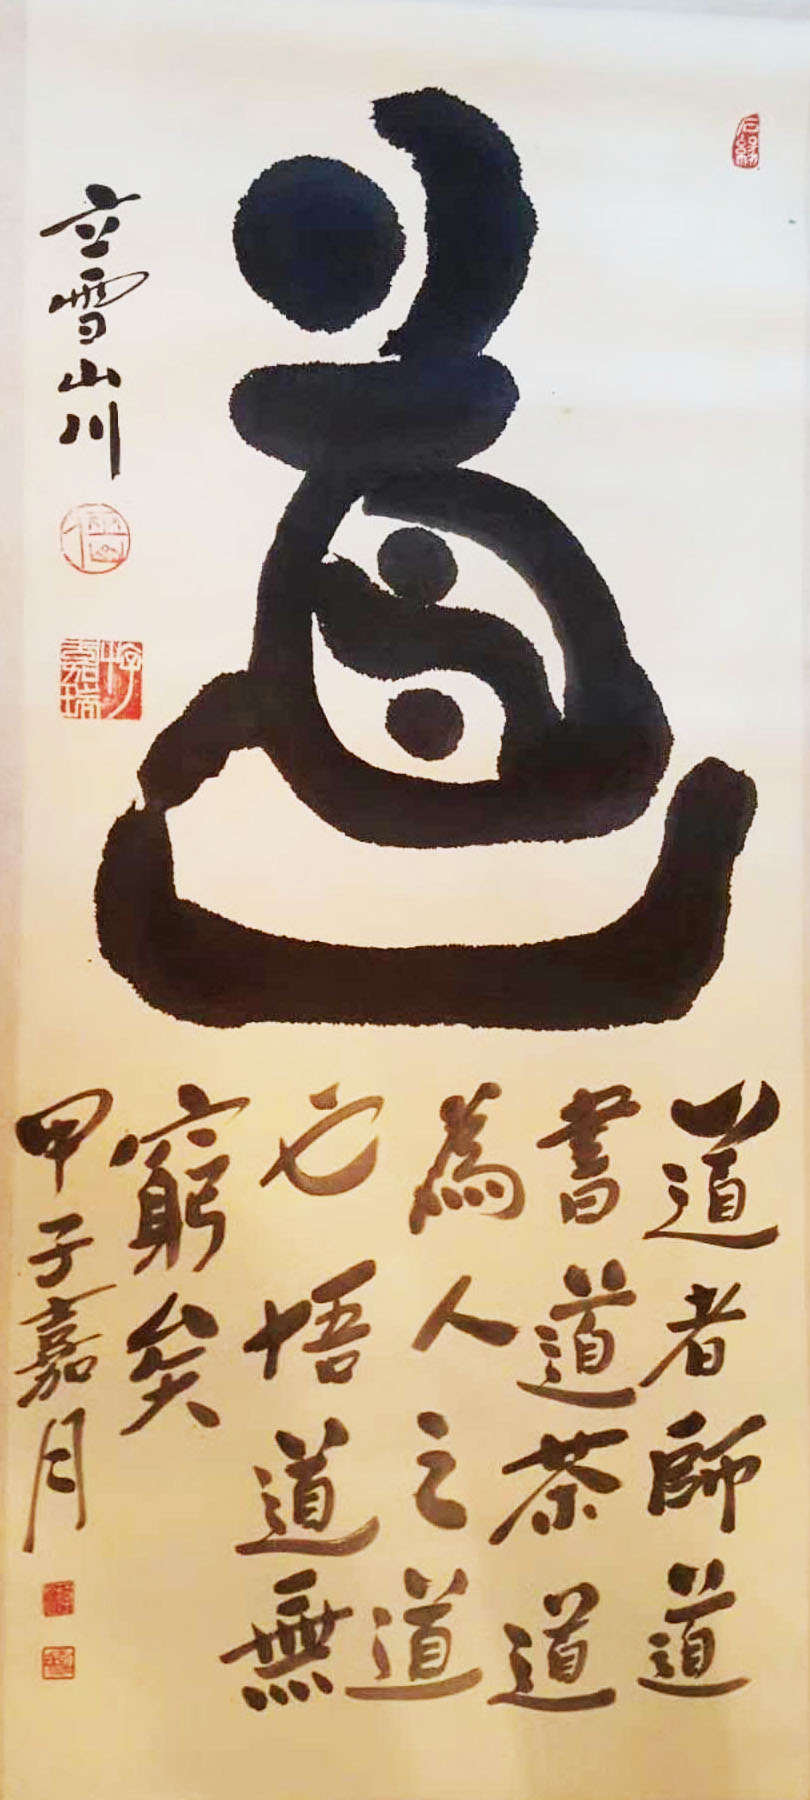 道
道者師道
書道茶道
為人之道
也悟道無
窮矣
甲子嘉月
立雪山川
石緣